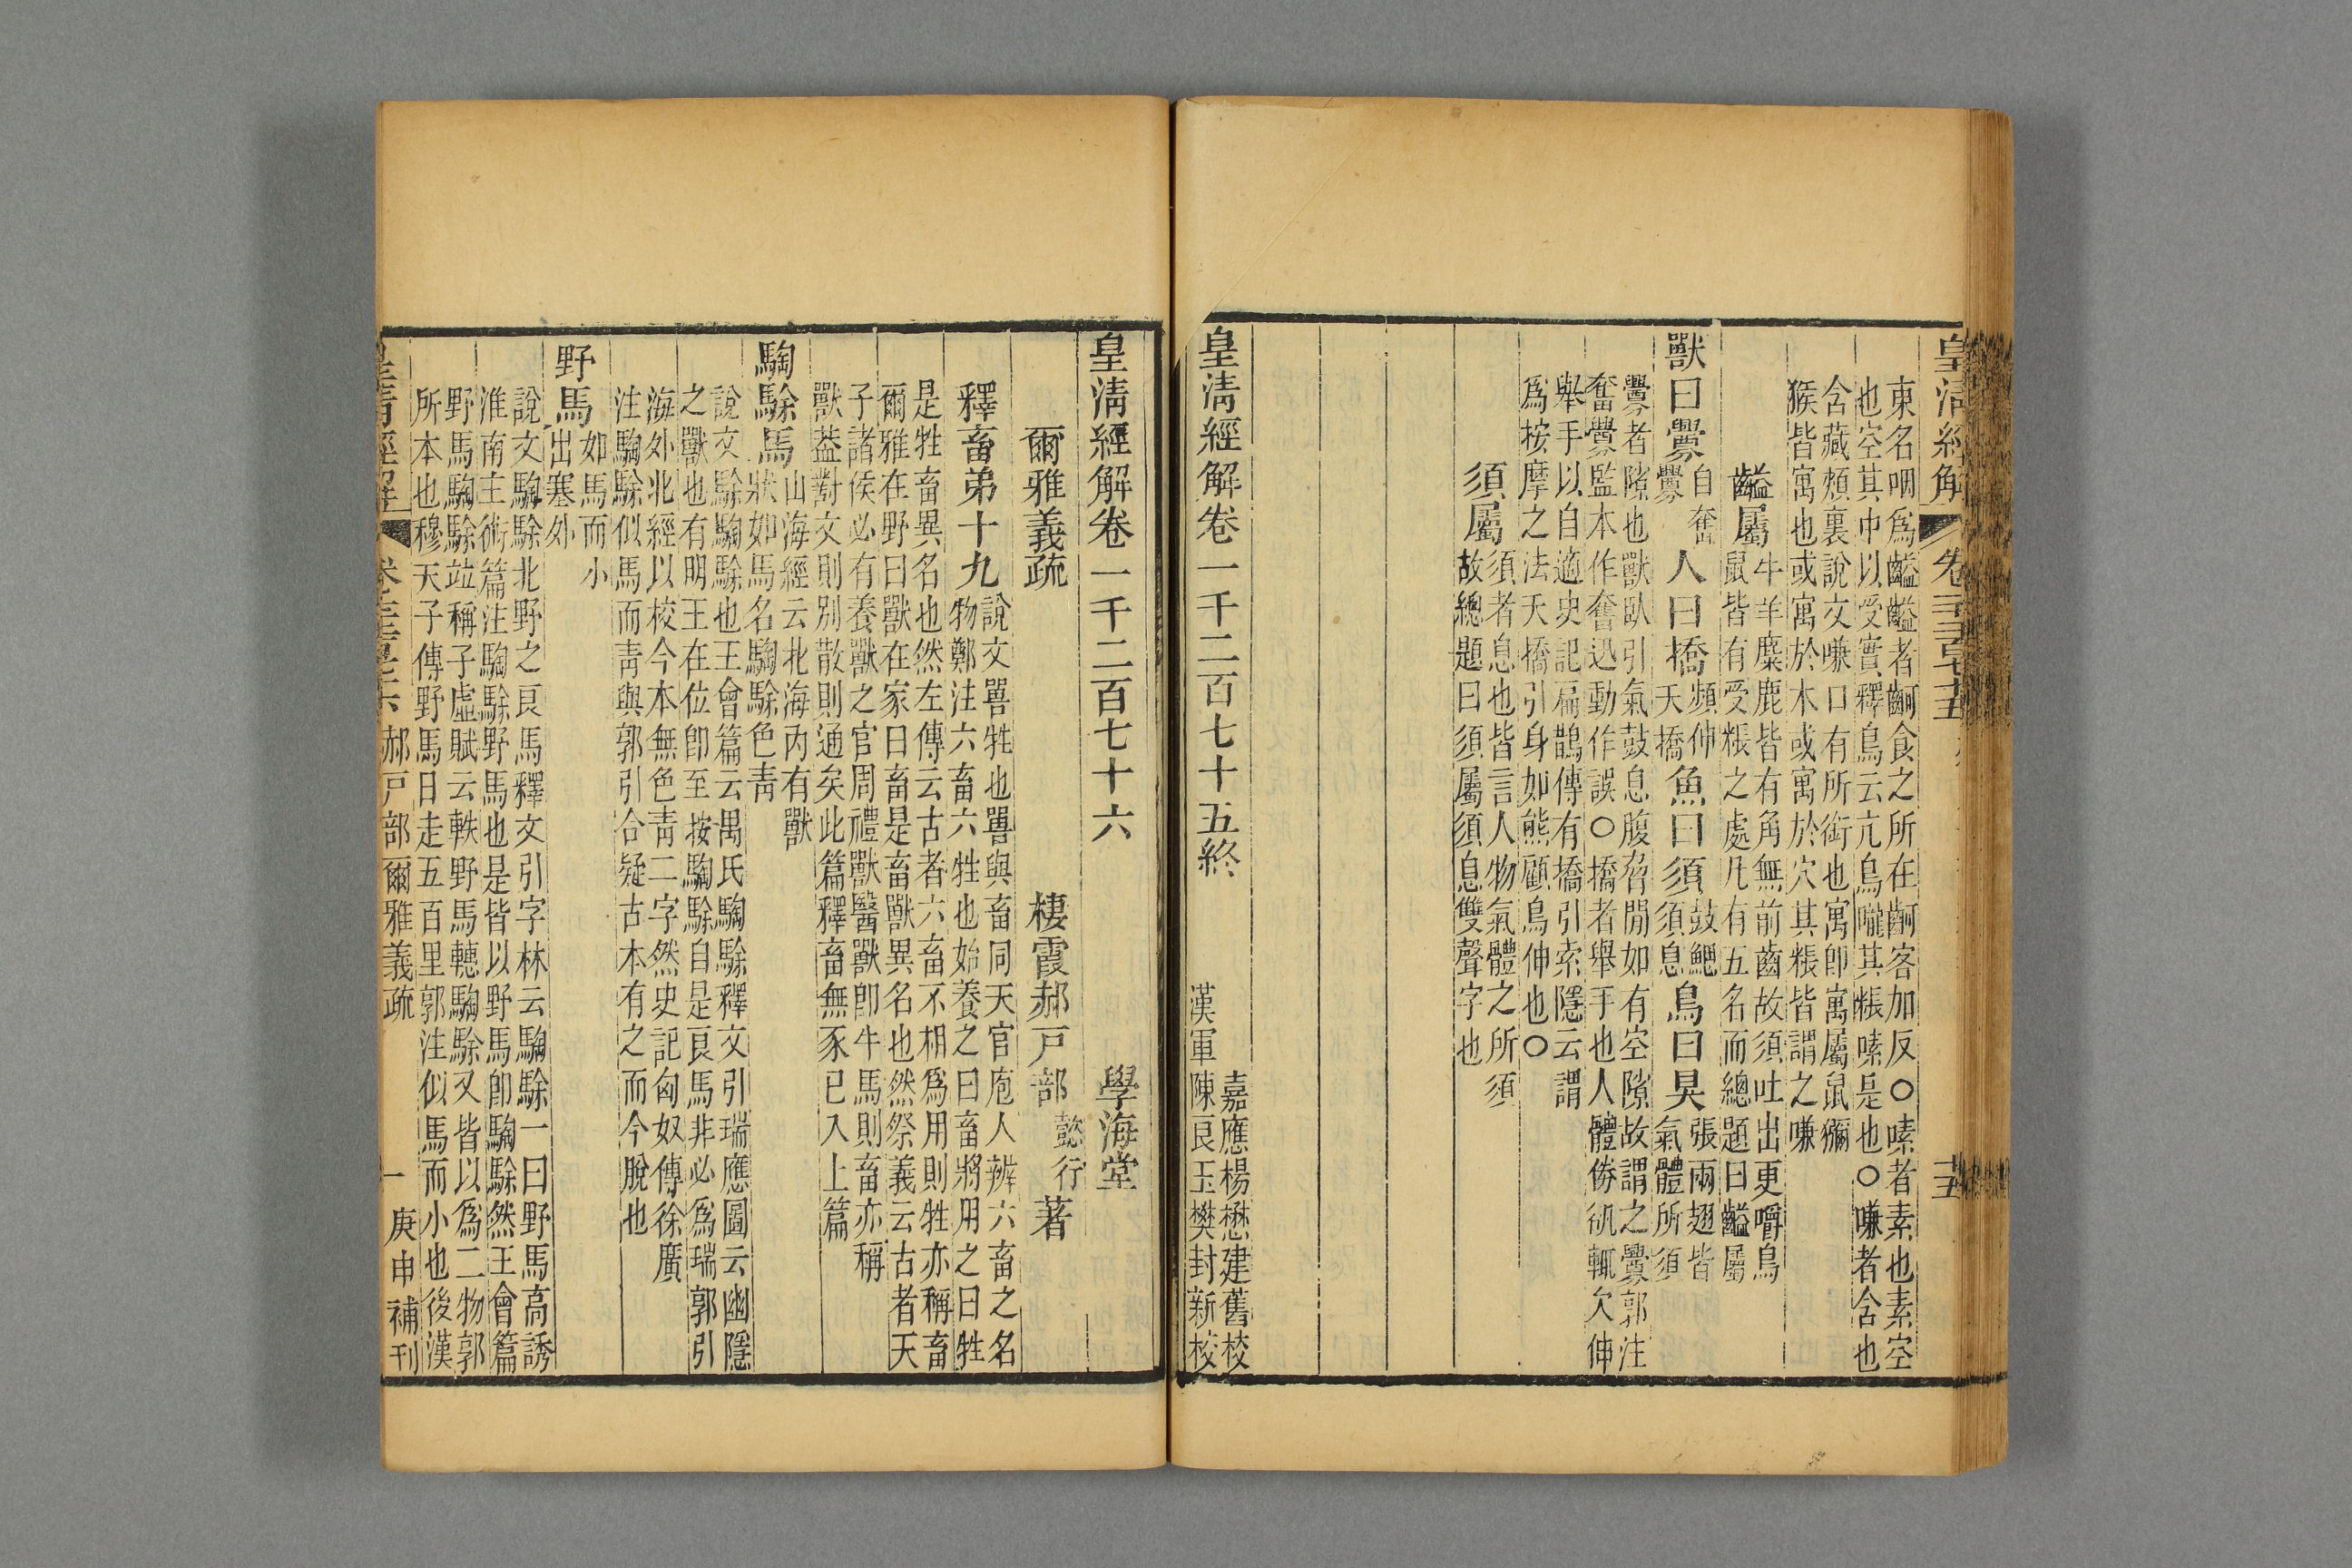 皇清經解 卷一千二百七十五
東名咽爲齸齸者齝食之所在齝客加反〇嗉者素也素空
也空其中以受實釋鳥云亢鳥嚨其粻嗉是也〇嗛者含也
含藏頰裏說文嗛口有所銜也寓卽寓屬鼠獼
猴皆寓也或寓於木或寓於穴其粻皆謂之嗛
齸屬
牛羊麋鹿皆有角無前齒故須吐出更嚼鳥
鼠皆有受粻之處凡有五名而總題曰齸屬
獸曰釁
自奮
釁
人曰撟
頻伸
夭撟
魚曰須
鼓鰓
須息
鳥曰狊
張兩翅皆
氣體所須
釁者隙也獸臥引氣鼓息腹脅閒如有空隙故謂之釁郭注
奮釁監本作奮迅動作誤〇撟者舉手也人體倦㑃輒欠伸
舉手以自適史記扁鵲傳有撟引索隱云謂
爲按摩之法夭撟引身如熊顧鳥伸也〇
須屬
須者息也皆言人物氣體之所須
故總題曰須屬須息雙聲字也
皇清經解卷一千二百七十五終
嘉應楊懋建舊校
漢軍陳良玉樊封新校
皇清經解卷一千二百七十六
學海堂
爾雅義疏
棲霞郝戸部懿行著
釋畜弟十九
說文嘼牲也嘼與畜同天官庖人辨六畜之名
物鄭注六畜六牲也始養之曰畜將用之曰牲
是牲畜異名也然左傳云古者六畜不相爲用則牲亦稱畜
爾雅在野曰獸在家曰畜是畜獸異名也然祭義云古者天
子諸侯必有養獸之官周禮獸醫獸卽牛馬則畜亦稱
獸葢對文則別散則通矣此篇釋畜無豕已入上篇
騊駼馬
山海經云北海內有獸
狀如馬名騊駼色靑
說文駼騊駼也王會篇云禺氏騊駼釋文引瑞應圖云幽隱
之獸也有明王在位卽至按騊駼自是良馬非必爲瑞郭引
海外北經以校今本無色靑二字然史記匈奴傳徐廣
注騊駼似馬而靑與郭引合疑古本有之而今脫也
野馬
如馬而小
出塞外
說文騊駼北野之良馬釋文引字林云騊駼一曰野馬高誘
淮南主術篇注騊駼野馬也是皆以野馬卽騊駼然王會篇
野馬騊駼竝稱子虛賦云軼野馬轊騊駼又皆以爲二物郭
所本也穆天子傳野馬日走五百里郭注似馬而小也後漢
皇清經解 郝戸部爾雅義疏 一 庚申補刊